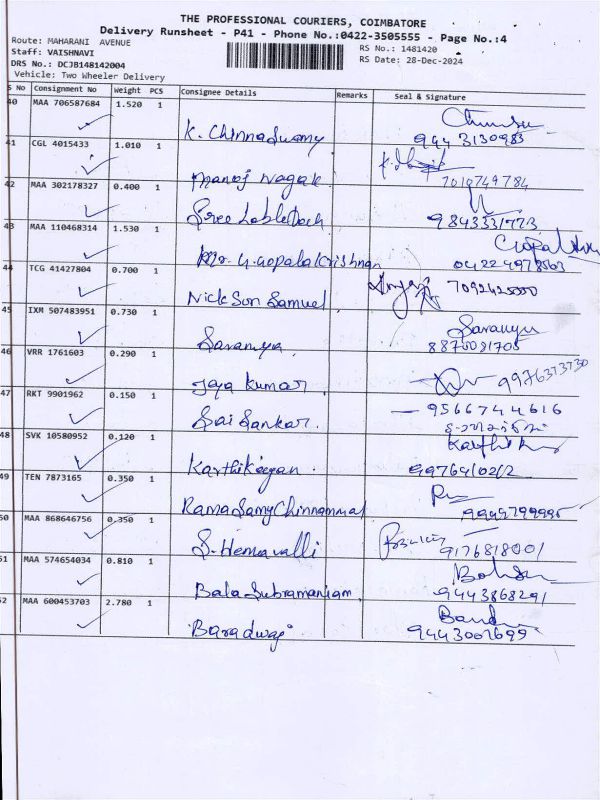 THE PROFESSIONAL COURIERS, COIMBATORE
Delivery Runsheet - P41 - Phone No.:0422-3505555 - Page No.:4
Route: MAHARANI AVENUE
Staff: VAISHNAVI
RS No.: 1481420
DRS No.: DCJB148142004
RS Date: 28-Dec-2024
Vehicle: Two Wheeler Delivery
S No Consignment No Weight PCS Consignee Details Remarks Seal & Signature
40 MAA 706587684 1.520 1
K. Chinnaswamy 9443130983
41 CGL 4015433 1.010 1
Manoj Nagak 7010749784
42 MAA 302178327 0.400 1
Sree Lableteck 9843331773
43 MAA 110468314 1.530 1
Mr. G. Gopalakrishnan
44 TCG 41427804 0.700 1
Nickson Samuel
45 IXM 507483951 0.730 1
Saranya Saranya
46 VRR 1761603 0.290 1
Jaya Kumar 9976373730
47 RKT 9901962 0.150 1
Sai Sankar 9566744616
48 SVK 10580952 0.120 1
Karthikeyan
49 TEN 7873165 0.350 1
RamaSamyChinnammal
50 MAA 868646756 0.350 1
S. Hemavalli 9176818001
51 MAA 574654034 0.810 1
Bala Subramaniam 9443868291
52 MAA 600453703 2.780 1
Baradwaj 9443007699